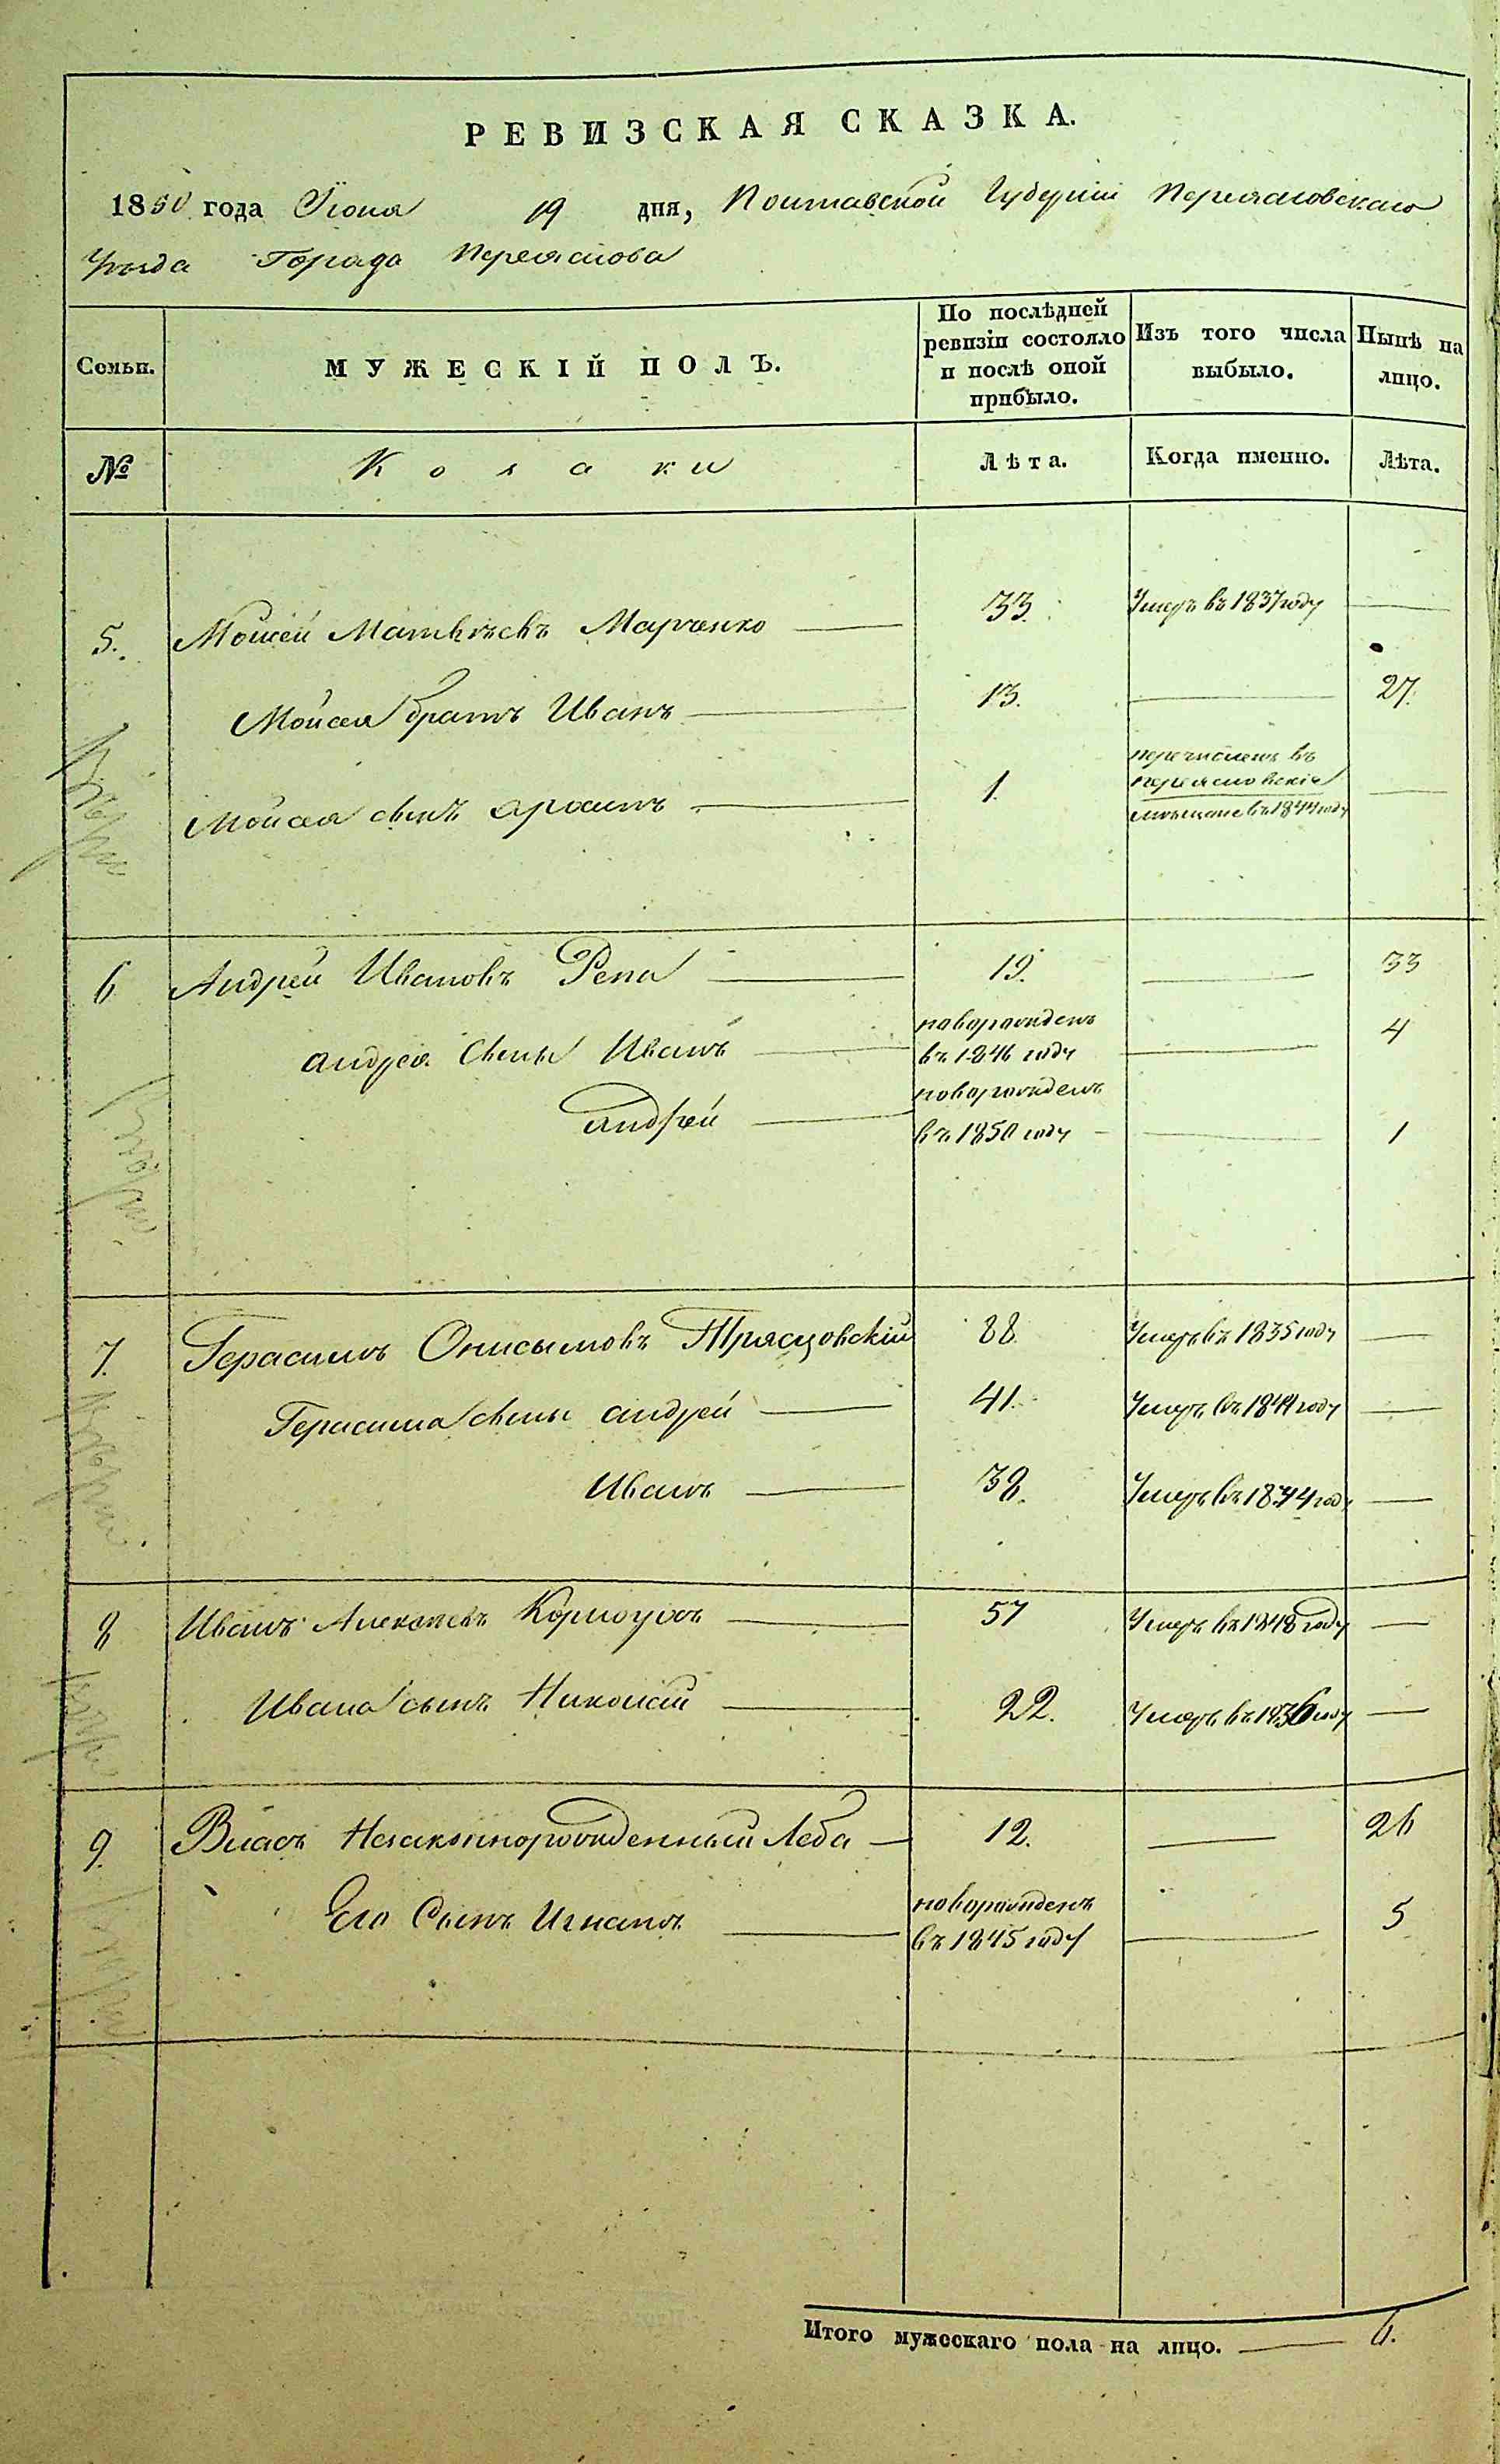 РЕВИЗСКАЯ СКАЗКА.
1850 года Іюня 19 дня, Полтавской Губерніи Переясловскаго
Уѣзда Города Переяслова
Семьи. МУЖЕСКІЙ ПОЛЪ. По послѣдней ревизіи состояло и послѣ оной прибыло. Изъ того числа выбыло. Нынѣ на лицо.
№ Козаки Лѣта. Когда именно. Лѣта.
5. Мойсей Матвѣевъ Марченко 33. Умеръ въ 1837 году
Мойсея братъ Иванъ 13. 27.
Мойсея сынъ 1. перечисленъ въ переясловскіе мѣщане въ 1844 году
6 Андрей Ивановъ Репа 19. 33
андрея Сыны Иванъ новорожденъ въ 1846 году 4
андрей новорожденъ въ 1850 году 1
7. Герасимъ Онисымовъ 88. Умеръ въ 1835 году
Герасима сыны андрей 41. Умеръ въ 1844 году
Иванъ 38. Умеръ въ 1844 году
8 Иванъ Алексѣевъ 57 Умеръ въ 1848 году
Ивана сынъ Николай 22. Умеръ въ 1836 году
9. Власъ Незаконнорожденный Леба 12. 26
Его Сынъ Игнатъ новорожденъ въ 1845 году 5
Итого мужескаго пола на лицо. 6.